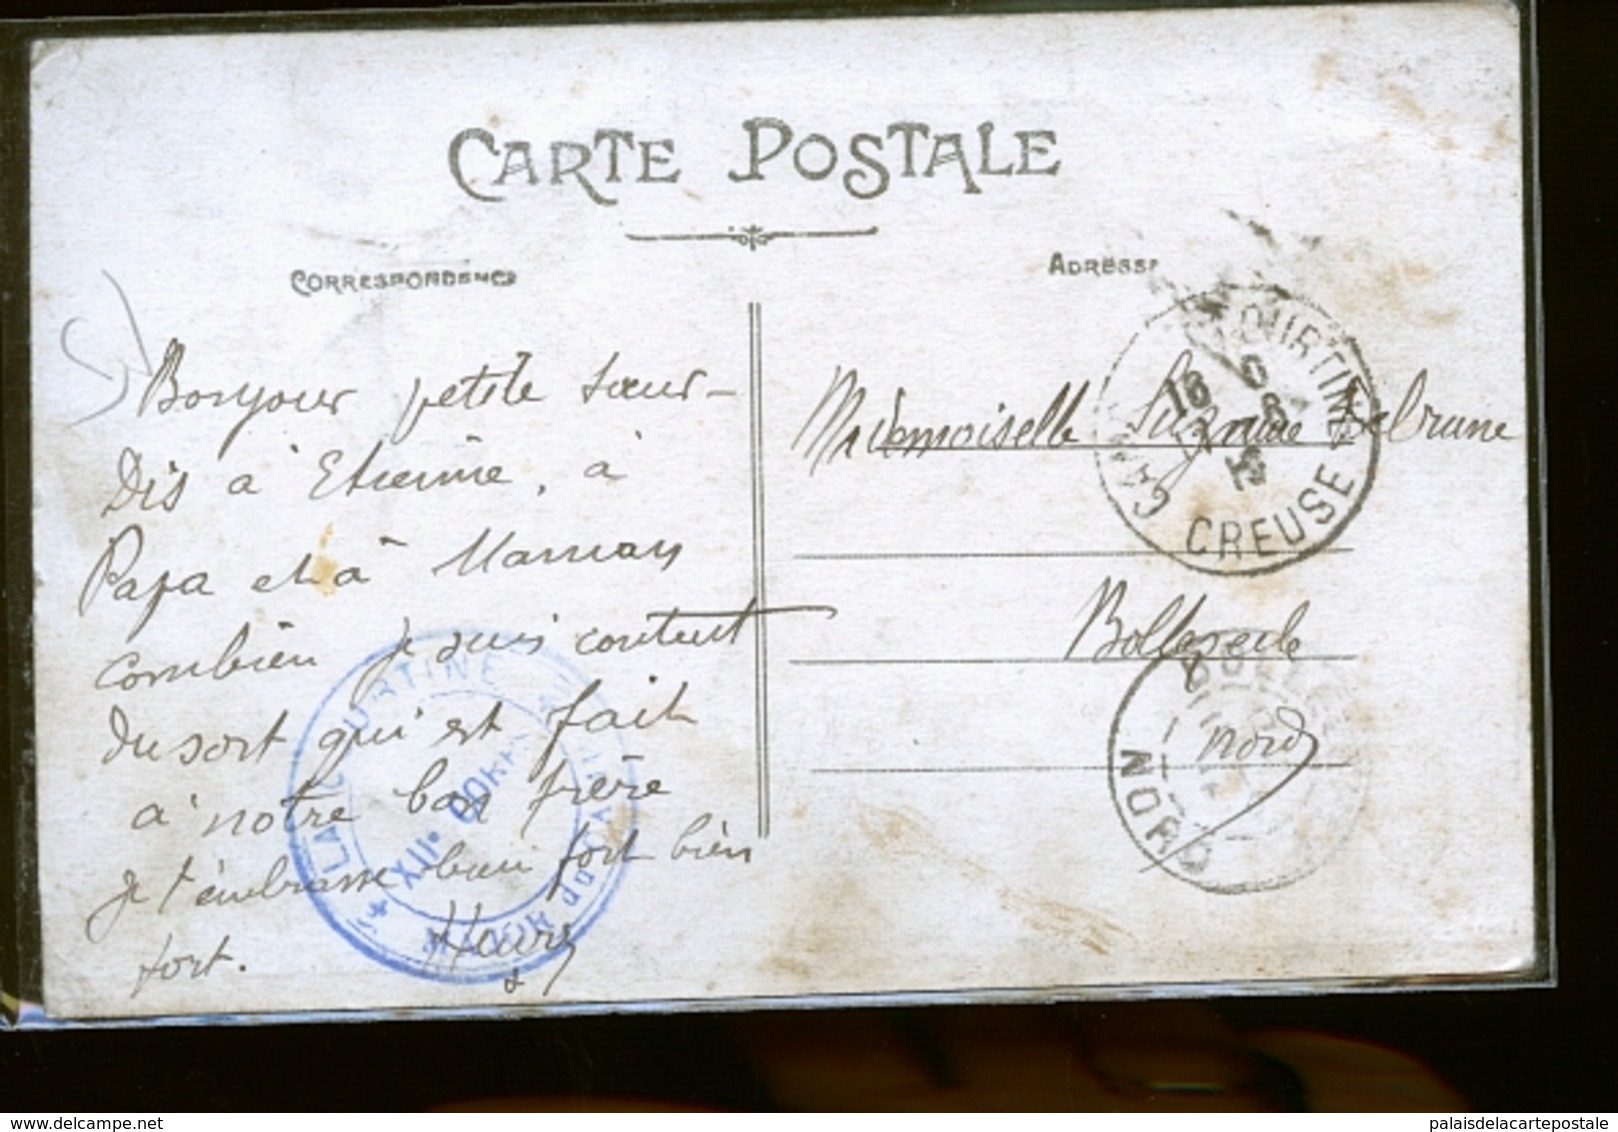 CARTE POSTALE
CORRESPONDENCE
ADRESSE
Bonjour petite sœur -
Dis à Etienne, à
Papa et à Maman
combien je suis content
du sort qui est fait
à notre bon frère
Je t'embrasse bien fort bien
fort.
Henri
Mademoiselle Suzanne Lebrune
Bollezeele
Nord
COURTINE
CREUSE
16
6
LA COURTINE
MAJOR du
XII
NORD
palaisdelacartepostale